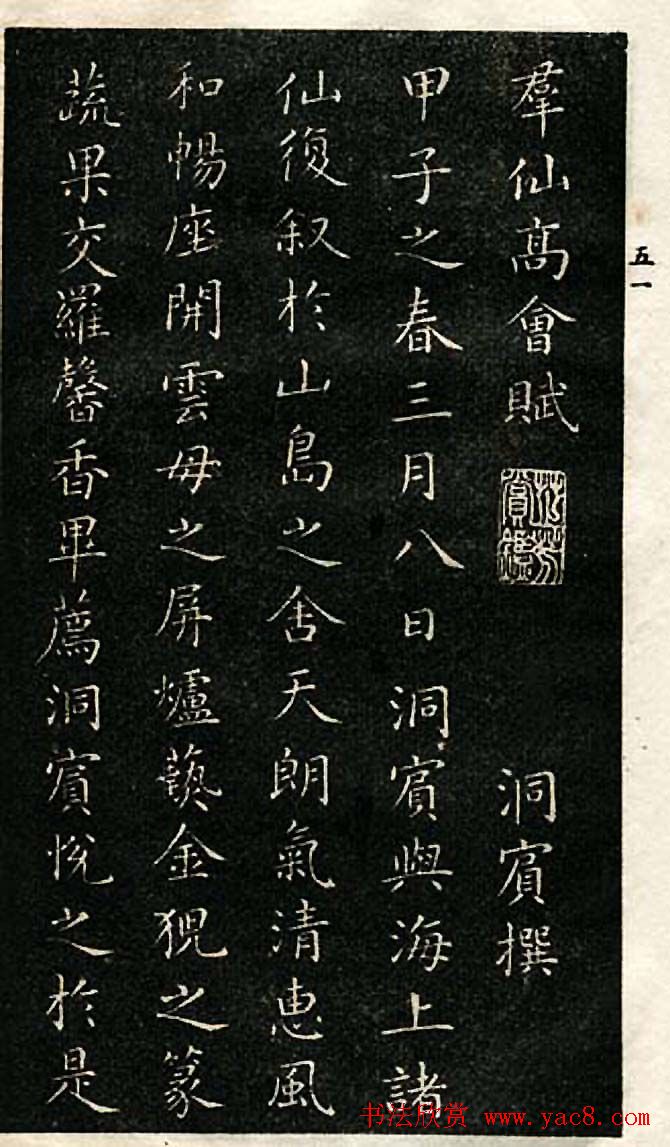 羣仙高會賦
洞賓撰
甲子之春三月八日洞賓與海上諸
仙復叙於山島之舍天朗氣清惠風
和暢座開雲母之屏爐爇金猊之篆
蔬果交羅馨香畢薦洞賓悅之於是
五一
书法欣赏 www.yac8.com